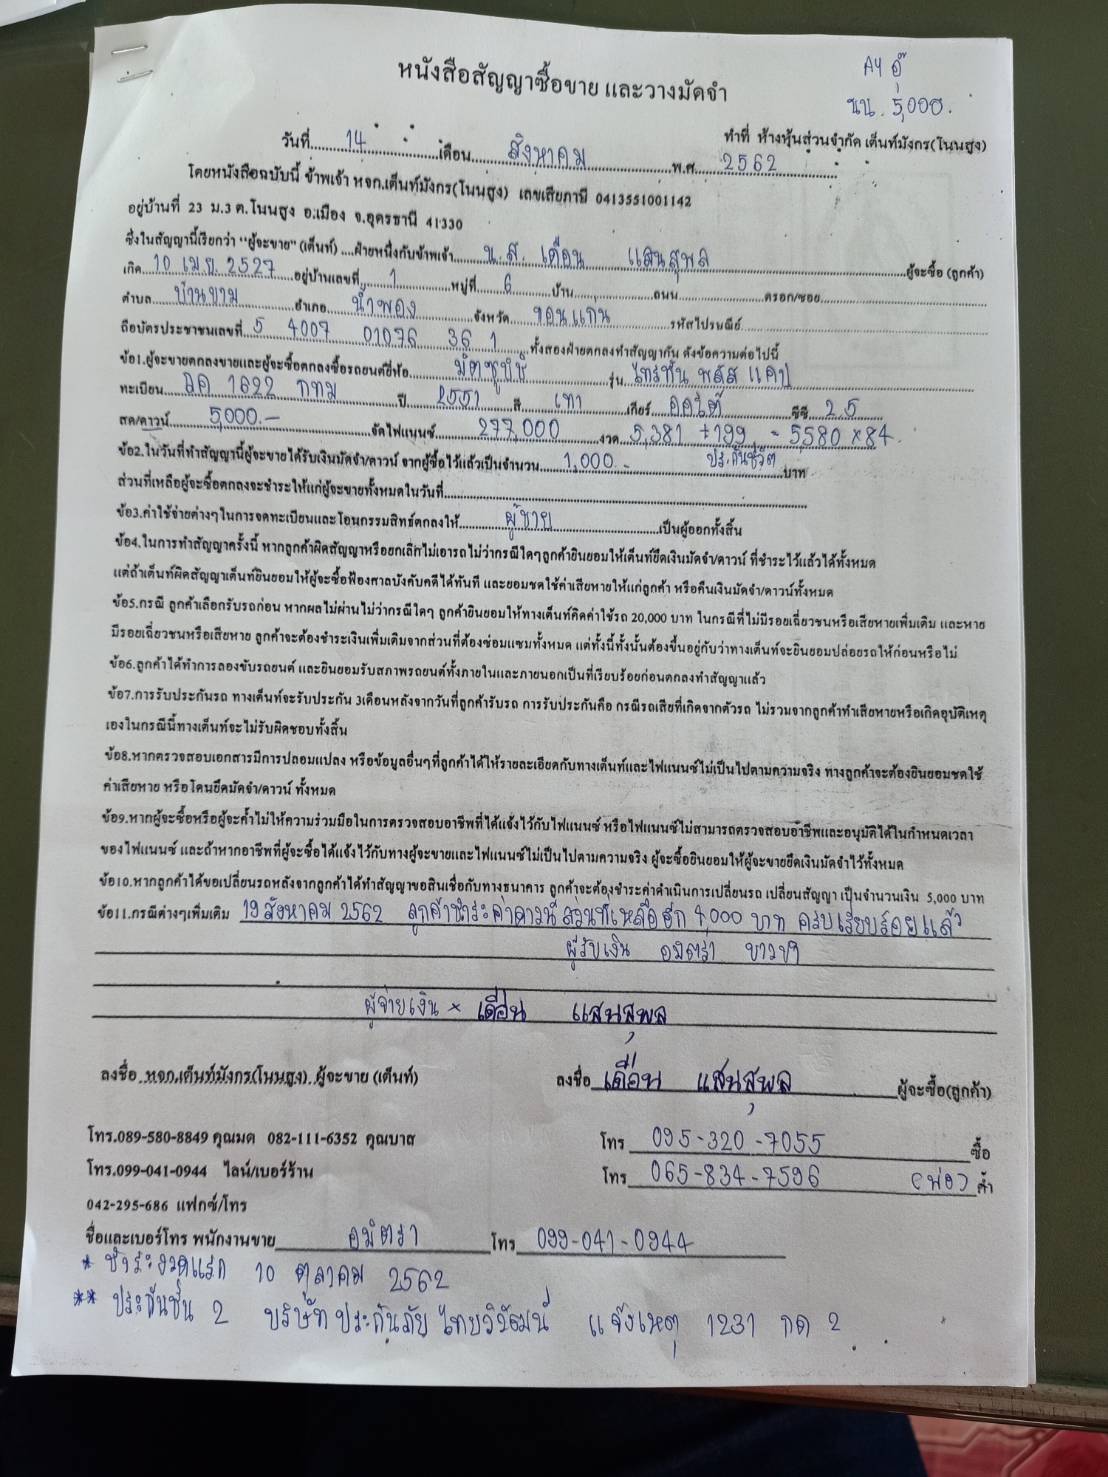 หนังสือสัญญาซื้อขาย และวางมัดจำ
AY อุ๊
นน. 5,000.
ทำที่ ห้างหุ้นส่วนจำกัด เต็นท์มังกร(โนนสูง)
วันที่ 14 เดือน สิงหาคม พ.ศ. 2562
โดยหนังสือฉบับนี้ ข้าพเจ้า หจก.เต็นท์มังกร(โนนสูง) เลขเสียภาษี 0413551001142
อยู่บ้านที่ 23 ม.3 ต.โนนสูง อ.เมือง จ.อุดรธานี 41330
ซึ่งในสัญญานี้เรียกว่า "ผู้จะขาย" (เต็นท์) ....ฝ่ายหนึ่งกับข้าพเจ้า น.ส. เดือน แสนสุพล ผู้จะซื้อ (ลูกค้า)
เกิด 10 เม.ย. 2527 อยู่บ้านเลขที่ 1 หมู่ที่ 6 บ้าน ถนน ตรอก/ซอย
ตำบล บ้านขาม อำเภอ น้ำพอง จังหวัด ขอนแก่น รหัสไปรษณีย์
ถือบัตรประชาชนเลขที่ 5 4007 01076 36 1 ทั้งสองฝ่ายตกลงทำสัญญากัน ดังข้อความต่อไปนี้
ข้อ1.ผู้จะขายตกลงขายและผู้จะซื้อตกลงซื้อรถยนต์ยี่ห้อ มิตซูบิชิ รุ่น ไทรทัน พลัส แคป
ทะเบียน 1622 กทม ปี 2551 สี เทา เกียร์ ออโต้ ซีซี 2.5
สด/ดาวน์ 5,000.- จัดไฟแนนซ์ 277,000 งวด 5,381 +199 = 5580 x 84.
ข้อ2.ในวันที่ทำสัญญานี้ผู้จะขายได้รับเงินมัดจำ/ดาวน์ จากผู้ซื้อไว้แล้วเป็นจำนวน 1,000.- ประกันชีวิต บาท
ส่วนที่เหลือผู้จะซื้อตกลงจะชำระให้แก่ผู้จะขายทั้งหมดในวันที่
ข้อ3.ค่าใช้จ่ายต่างๆในการจดทะเบียนและโอนกรรมสิทธ์ตกลงให้ ผู้ขาย เป็นผู้ออกทั้งสิ้น
ข้อ4.ในการทำสัญญาครั้งนี้ หากลูกค้าผิดสัญญาหรือยกเลิกไม่เอารถ ไม่ว่ากรณีใดๆลูกค้ายินยอมให้เต็นท์ยึดเงินมัดจำ/ดาวน์ ที่ชำระไว้แล้วได้ทั้งหมด
แต่ถ้าเต็นท์ผิดสัญญาเต็นท์ยินยอมให้ผู้จะซื้อฟ้องศาลบังคับคดีได้ทันที และยอมชดใช้ค่าเสียหายให้แก่ลูกค้า หรือคืนเงินมัดจำ/ดาวน์ทั้งหมด
ข้อ5.กรณี ลูกค้าเลือกรับรถก่อน หากผลไม่ผ่านไม่ว่ากรณีใดๆ ลูกค้ายินยอมให้ทางเต็นท์คิดค่าใช้รถ 20,000 บาท ในกรณีที่ไม่มีรอยเฉี่ยวชนหรือเสียหายเพิ่มเติม และหาย
มีรอยเฉี่ยวชนหรือเสียหาย ลูกค้าจะต้องชำระเงินเพิ่มเติมจากส่วนที่ต้องซ่อมแซมทั้งหมด แต่ทั้งนี้ทั้งนั้นต้องขึ้นอยู่กับว่าทางเต็นท์จะยินยอมปล่อยรถให้ก่อนหรือไม่
ข้อ6.ลูกค้าได้ทำการลองขับรถยนต์ และยินยอมรับสภาพรถยนต์ทั้งภายในและภายนอกเป็นที่เรียบร้อยก่อนตกลงทำสัญญาแล้ว
ข้อ7.การรับประกันรถ ทางเต็นท์จะรับประกัน 3เดือนหลังจากวันที่ลูกค้ารับรถ การรับประกันคือ กรณีรถเสียที่เกิดจากตัวรถ ไม่รวมจากลูกค้าทำเสียหายหรือเกิดอุบัติเหตุ
เองในกรณีนี้ทางเต็นท์จะไม่รับผิดชอบทั้งสิ้น
ข้อ8.หากตรวจสอบเอกสารมีการปลอมแปลง หรือข้อมูลอื่นๆที่ลูกค้าได้ให้รายละเอียดกับทางเต็นท์และไฟแนนซ์ไม่เป็นไปตามความจริง ทางลูกค้าจะต้องยินยอมชดใช้
ค่าเสียหาย หรือโดนยึดมัดจำ/ดาวน์ ทั้งหมด
ข้อ9.หากผู้จะซื้อหรือผู้จะค้ำไม่ให้ความร่วมมือในการตรวจสอบอาชีพที่ได้แจ้งไว้กับไฟแนนซ์ หรือไฟแนนซ์ไม่สามารถตรวจสอบอาชีพและอนุมัติได้ในกำหนดเวลา
ของไฟแนนซ์ และถ้าหากอาชีพที่ผู้จะซื้อได้แจ้งไว้กับทางผู้จะขายและไฟแนนซ์ไม่เป็นไปตามความจริง ผู้จะซื้อยินยอมให้ผู้จะขายยึดเงินมัดจำไว้ทั้งหมด
ข้อ10.หากลูกค้าได้ขอเปลี่ยนรถหลังจากลูกค้าได้ทำสัญญาขอสินเชื่อกับทางธนาคาร ลูกค้าจะต้องชำระค่าดำเนินการเปลี่ยนรถ เปลี่ยนสัญญา เป็นจำนวนเงิน 5,000 บาท
ข้อ11.กรณีต่างๆเพิ่มเติม 19 สิงหาคม 2562 ลูกค้าชำระค่าดาวน์ส่วนที่เหลืออีก 4,000 บาท ครบเรียบร้อยแล้ว
ผู้รับเงิน อมิตรา
ผู้จ่ายเงิน x เดือน แสนสุพล
ลงชื่อ..หจก.เต็นท์มังกร(โนนสูง)..ผู้จะขาย (เต็นท์) ลงชื่อ เดือน แสนสุพล ผู้จะซื้อ(ลูกค้า)
โทร.089-580-8849 คุณมด 082-111-6352 คุณบาส โทร 095-320-7055 ซื้อ
โทร.099-041-0944 ไลน์/เบอร์ร้าน โทร 065-834-7596 (พ่อ) ค้ำ
042-295-686 แฟกซ์/โทร
ชื่อและเบอร์โทร พนักงานขาย อมิตรา โทร 099-041-0944
* ชำระงวดแรก 10 ตุลาคม 2562
** ประกันชั้น 2 บริษัท ประกันภัย ไทยวิวัฒน์ แจ้งเหตุ 1231 กด 2